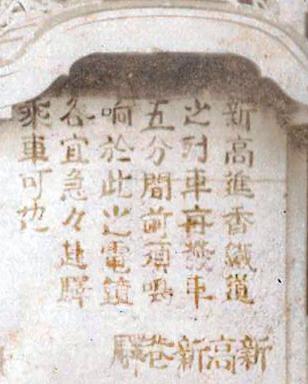 新高進香鐵道
之列車每發車
五分間前須鳴
响於此出電鐘
各宜急々赴驛
乘車可也
新高新巷驛